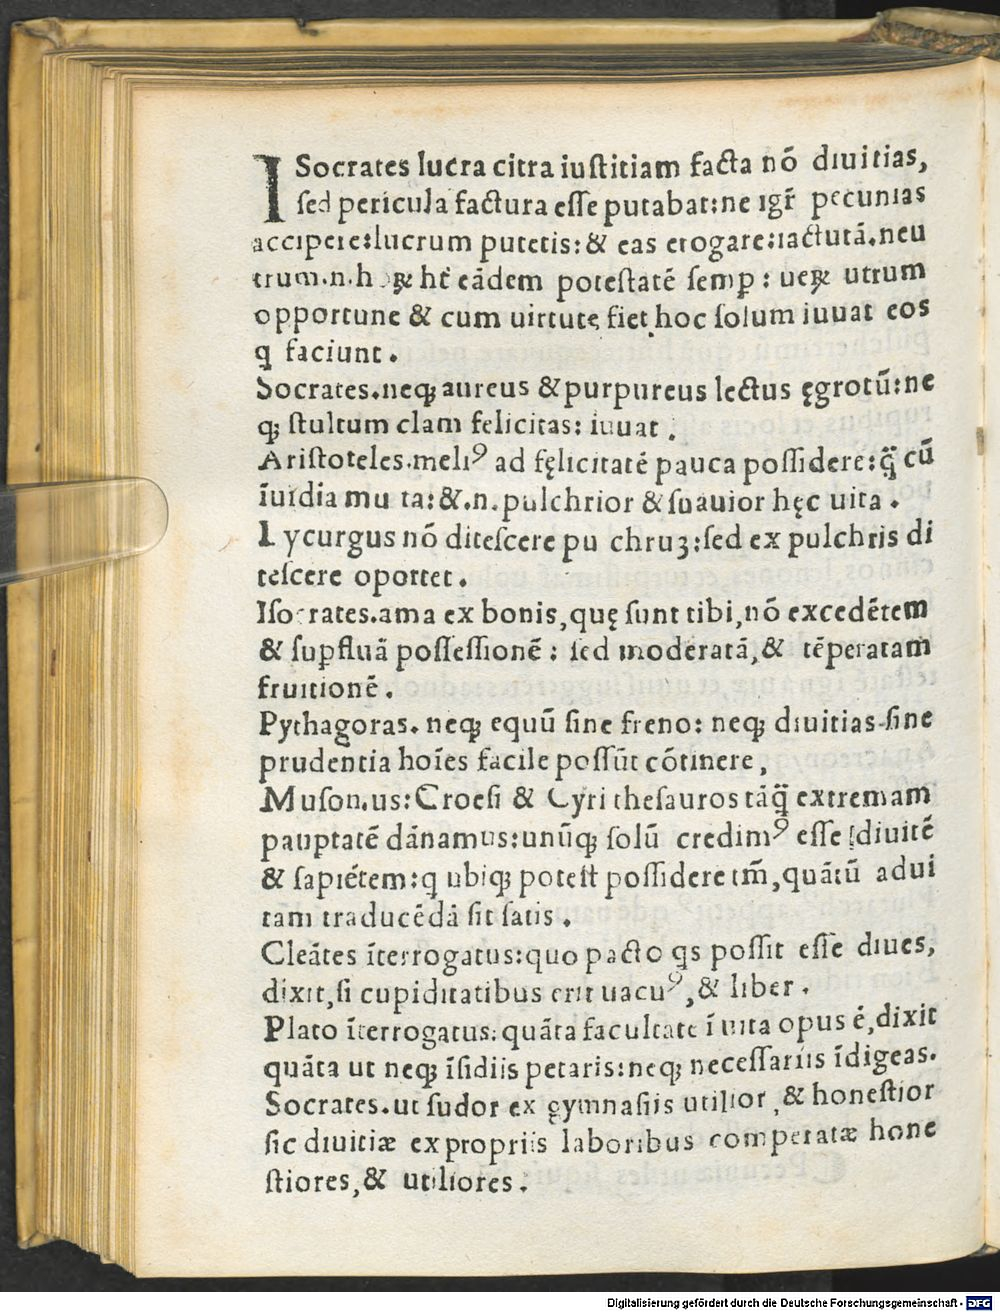 ISocrates lucra citra iustitiam facta nō diuitias,
sed pericula factura esse putabat:ne igr̄ pecunias
accipere:lucrum putetis:& eas erogare:iactutā.neu
trum.n.h ꝝ ht̄ eādem potestatē semꝑ : ueꝝ utrum
opportune & cum uirtute fiet hoc solum iuuat eos
q̄ faciunt.
Socrates.neqꝫ aureus & purpureus lectus ęgrotū:ne
qꝫ stultum clam felicitas: iuuat.
Aristoteles.meliꝰ ad fęlicitatē pauca possidere:q̄ cū
īuidia mu ta:&.n.pulchrior & suauior hęc uita.
Lycurgus nō ditescere pu chruꝫ:sed ex pulchris di
tescere oportet.
Isocrates.ama ex bonis,quę sunt tibi,nō excedētem
& suꝑfluā possessionē: sed moderatā,& tēperatam
fruitionē.
Pythagoras. neqꝫ equū sine freno: neqꝫ diuitias sine
prudentia hoīes facile possūt cōtinere,
Muson.us:Croesi & Cyri thesauros tāq̄ extremam
pauptatē dānamus:unūqꝫ solū credimꝰ esse diuitē
& sapiētem:q ubiqꝫ potest possidere tm̄,quātū adui
tam traducēdā sit satis.
Cleātes īterrogatus:quo pacto qs possit esse diues,
dixit,si cupiditatibus erit uacuꝰ,& liber.
Plato īterrogatus:quāta facultate ī uita opus ē,dixit
quāta ut neqꝫ īsidiis petaris:neqꝫ necessariis īdigeas.
Socrates.ut sudor ex gymnasiis utilior,& honestior
sic diuitiæ ex propriis laboribus comperatæ hone
stiores,& utiliores.
Digitalisierung gefördert durch die Deutsche Forschungsgemeinschaft - DFG